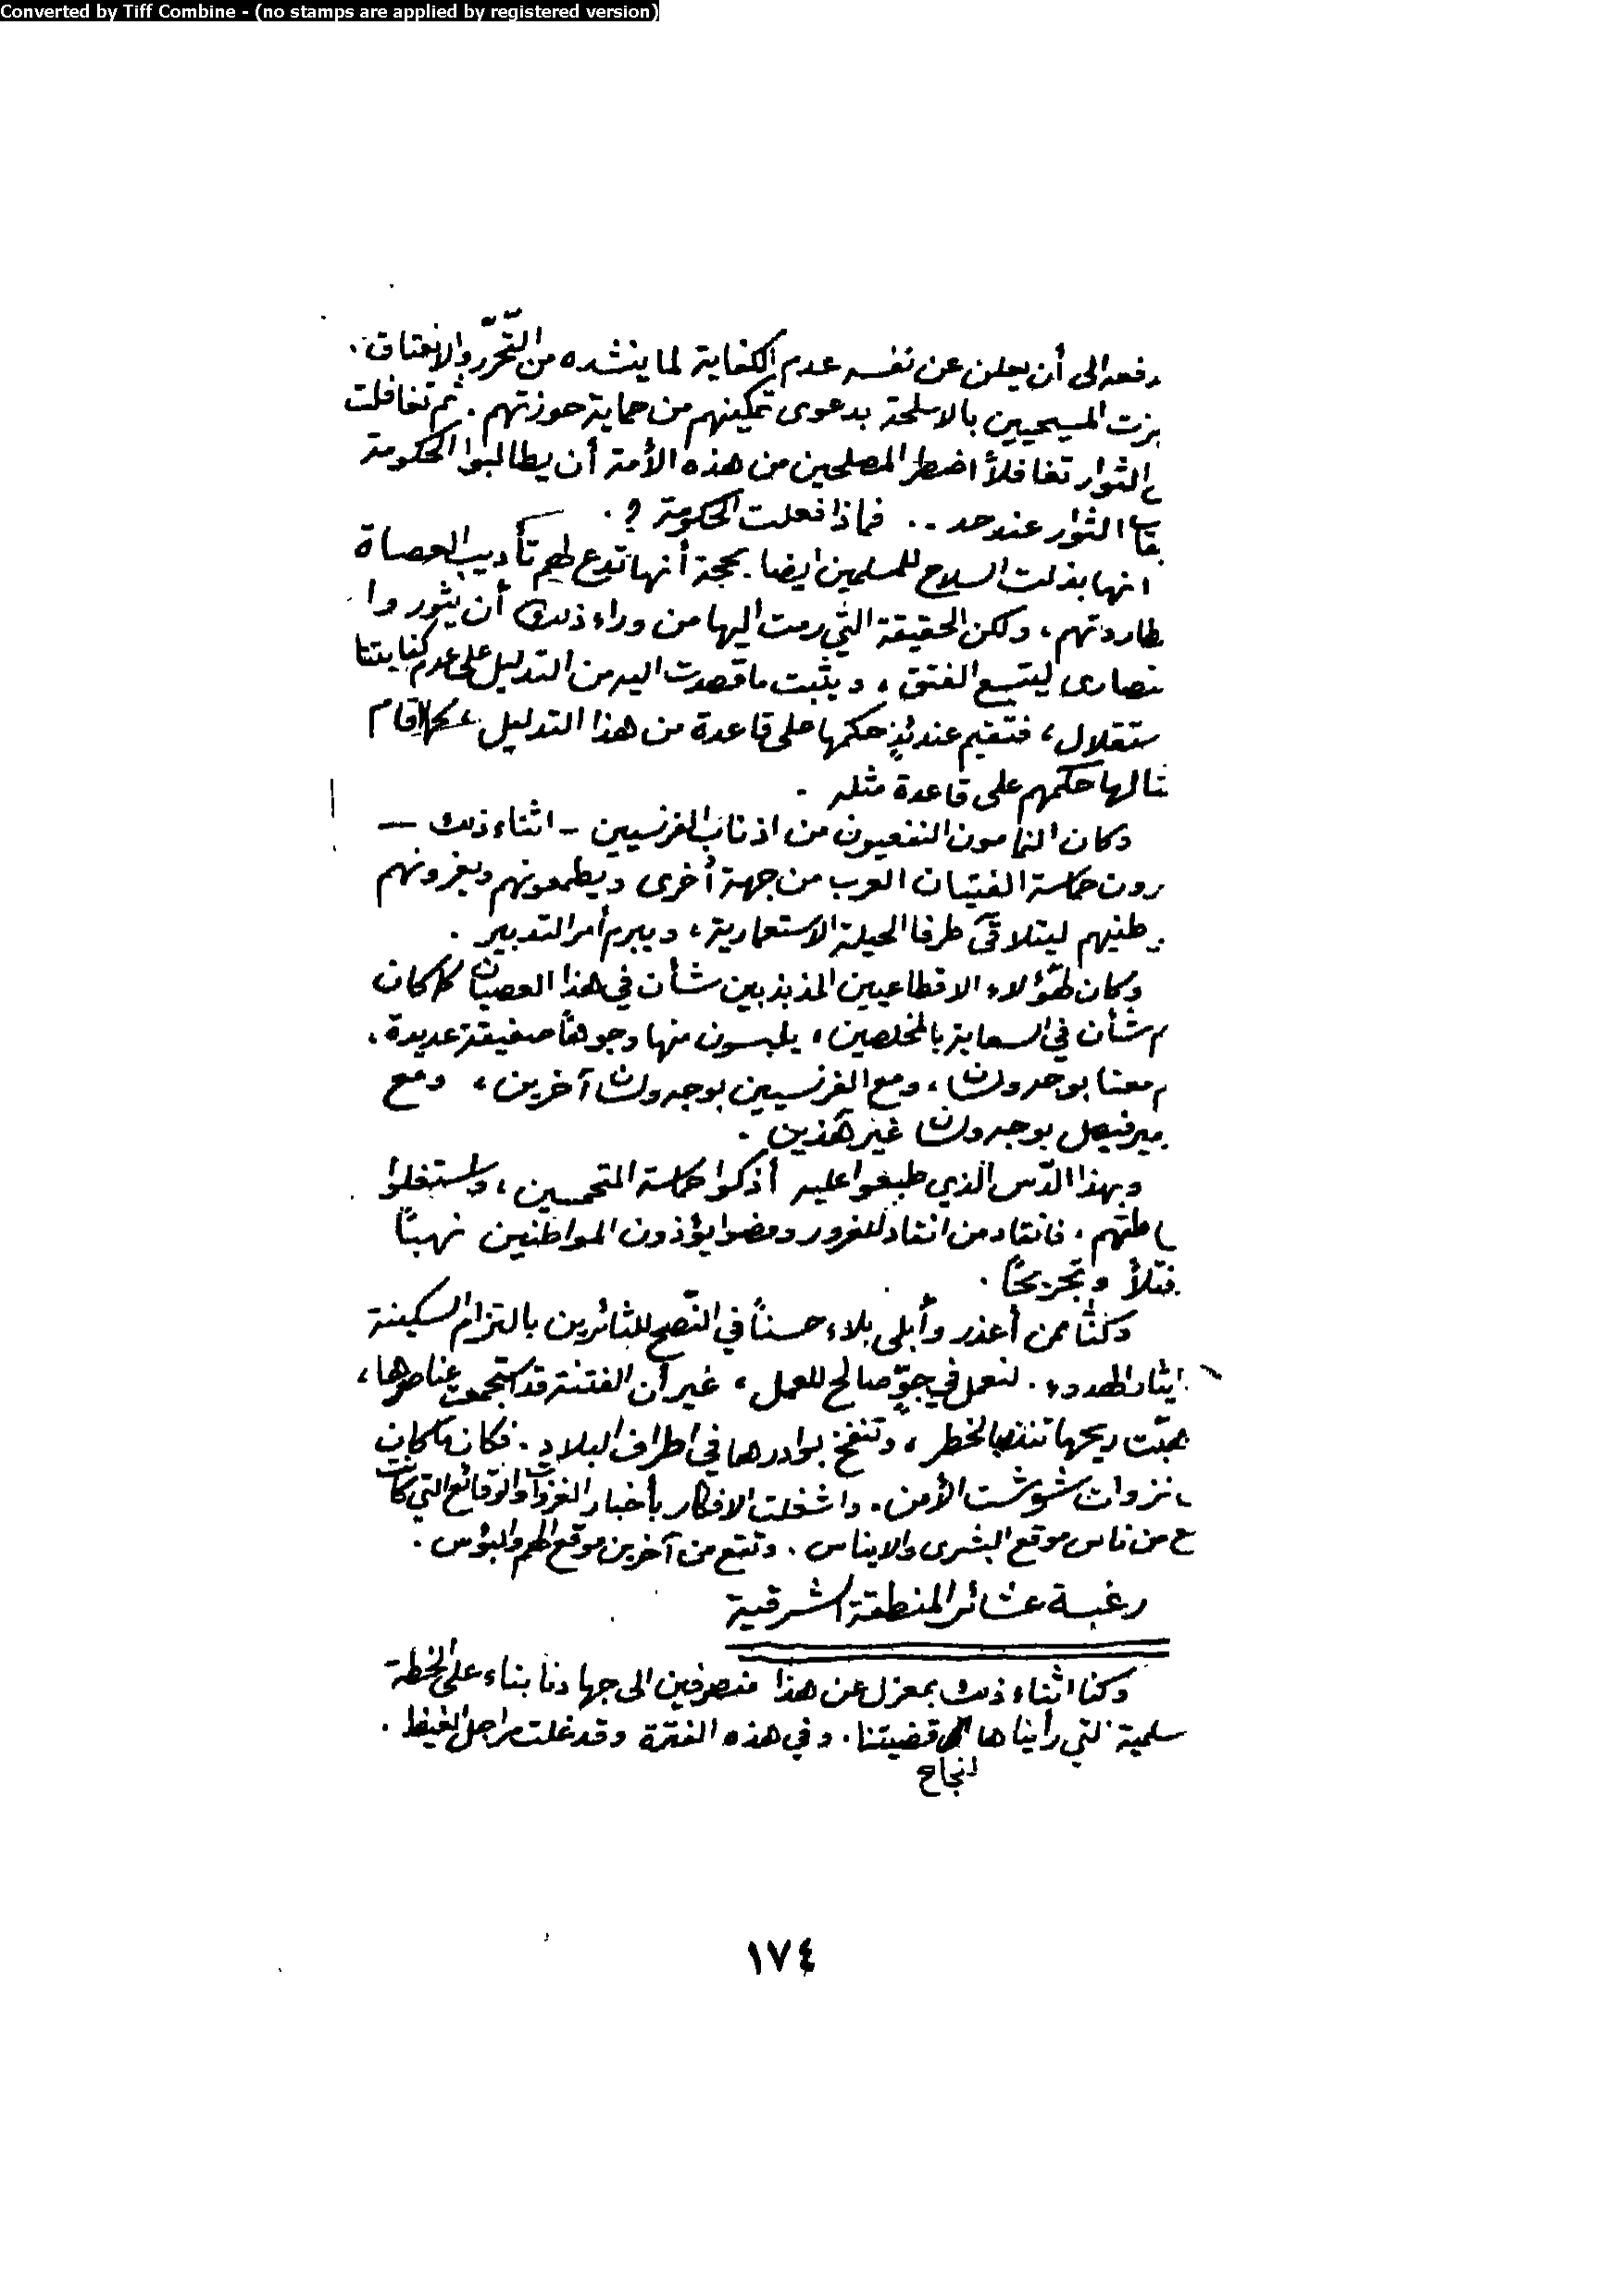 Converted by Tiff Combine - (no stamps are applied by registered version)
دفعه الى أن يعلن عن نفسه عدم الكفاية لما ينشده من التّحرّر والانعتاق .
بزت المسيحيين بالاسلحة بدعوى تمكينهم من حماية حوزتهم . ثم تغافلت
الثوار تغافلاً اضطر المصلحين من هذه الأمة أن يطالبوا الحكومة
الثوار عند حد .. فماذا فعلت الحكومة ؟ .
انها بذلت السلاح للمسلمين ايضا . بحجة أنها تدع لهم تأديب العصاة
طاردتهم ، ولكن الحقيقة التي رمت اليها من وراء ذلك أن يثوروا
نصارى ليتسع الفتق ، ويثبت ما قصدت اليه من التدليل على عدم كفايتنا
ستقلال ، فتقيم عندئذٍ حكمها على قاعدة من هذا التدليل ، كما اقام
ثالها حكمهم على قاعدة مثله .
وكان النمامون النفعيون من اذناب الفرنسيين - اثناء ذلك —
رون حماسة الفتيان العرب من جهة أخرى ويطمعونهم ويغرونهم
طنيهم ليتلاقى طرفا الحيلة الاستعمارية ، ويبرم أمر التدبير .
وكان لهؤلاء الاقطاعيين المذبذبين شأن في هذا العصيان كما كان
م شأن في السعاية بالمخلصين ، يلبسون منها وجوهاً صفيقة عديدة .
م معنا بوجه ولسان ، ومع الفرنسيين بوجه ولسان آخرين ، ومع
مير فيصل بوجه ولسان غير هذين .
وبهذا الدّس الذي طبعوا عليه أذكوا حماسة المتحمسين ، واستغلوا
طتهم . فانقاد من انقاد للغرور ومضوا يؤذون المواطنين نهباً
قتلاً وتجريحاً .
وكنّا ممن أعذر وأبلى بلاء حسناً في النّصح للثائرين بالتزام السكينة
ايثار الهدوء . لنعمل في جوّ صالح للعمل ، غير أن الفتنة قد استجمعت عناصرها ،
هبّت ريحها تنذر بالخطر ، وتنفخ بوادرها في اطراف البلاد . فكان ما كان
نزوات شوشت الأمن . واشغلت الافكار بأخبار الغزوات والوقائع التي كانت
ع من ناس موقع البشرى والايناس . وتقع من آخرين موقع الهم والبؤس .
رغبة عشائر المنطقة الشرقية
وكنا اثناء ذلك بمعزل عن هذا منصرفين الى جهادنا بناء على الخطة
سلمية التي رأيناها لنجاح قضيتنا . وفي هذه الفترة وقد غلت مراجل الغيظ .
١٧٤